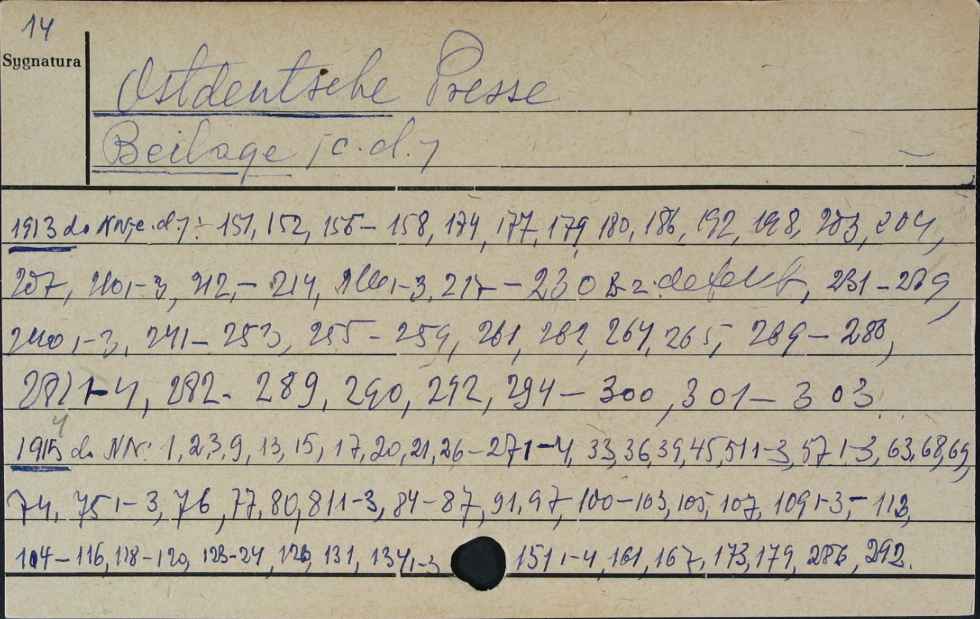 14
Sygnatura
Ostdeutsche Presse
Beilage /c.d./
1913 do NN/c.d./: 151, 152, 155 – 158, 174, 177, 179, 180, 186, 192, 198, 203, 204,
207, 210,1-3, 212, – 214, 216,1-3, 217 – 230 B-2 defekt, 231 – 239,
240,1-3, 241 – 253, 255 – 259, 261, 262, 264, 265, 269 – 280,
281,1-4, 282 - 289, 290, 292, 294 – 300, 301 – 303.
1914 do NN: 1, 2, 3, 9, 13, 15, 17, 20, 21, 26 – 27,1-4, 33, 36, 39, 45, 51,1-3, 57,1-3, 63, 68, 69,
74, 75,1-3, 76, 77, 80, 81,1-3, 84 – 87, 91, 97, 100 – 103, 105, 107, 109,1-3, – 113,
104 – 116, 118 – 120, 123-24, 126, 131, 134,1-3 151,1-4, 161, 167, 173, 179, 286, 292.